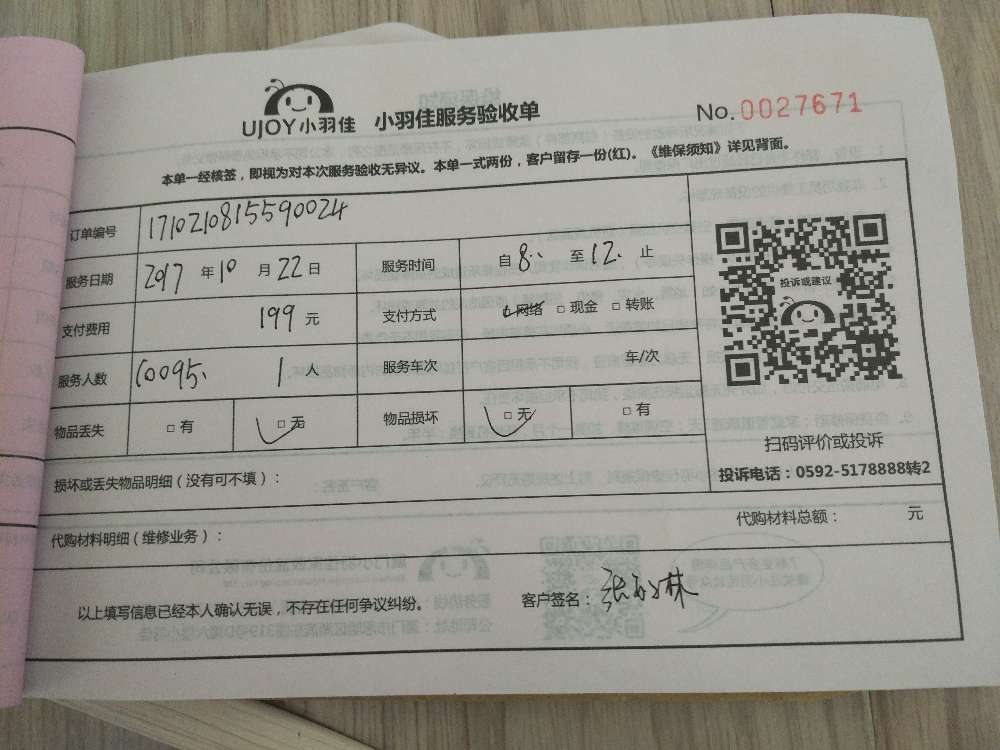 UJOY小羽佳 小羽佳服务验收单 No.0027671
本单一经核签，即视为对本次服务验收无异议。本单一式两份，客户留存一份(红)。《维保须知》详见背面。
订单编号 1710210815590024
服务日期 2017 年 10 月 22 日 服务时间 自 8:00 至 12: 止
投诉或建议
支付费用 199 元 支付方式 □网络 □现金 □转账
服务人数 60095、 1 人 服务车次 车/次
物品丢失 □有 □无 物品损坏 □无 □有
扫码评价或投诉
投诉电话：0592-5178888转2
损坏或丢失物品明细（没有可不填）：
代购材料明细（维修业务）： 代购材料总额： 元
以上填写信息已经本人确认无误，不存在任何争议纠纷。 客户签名：